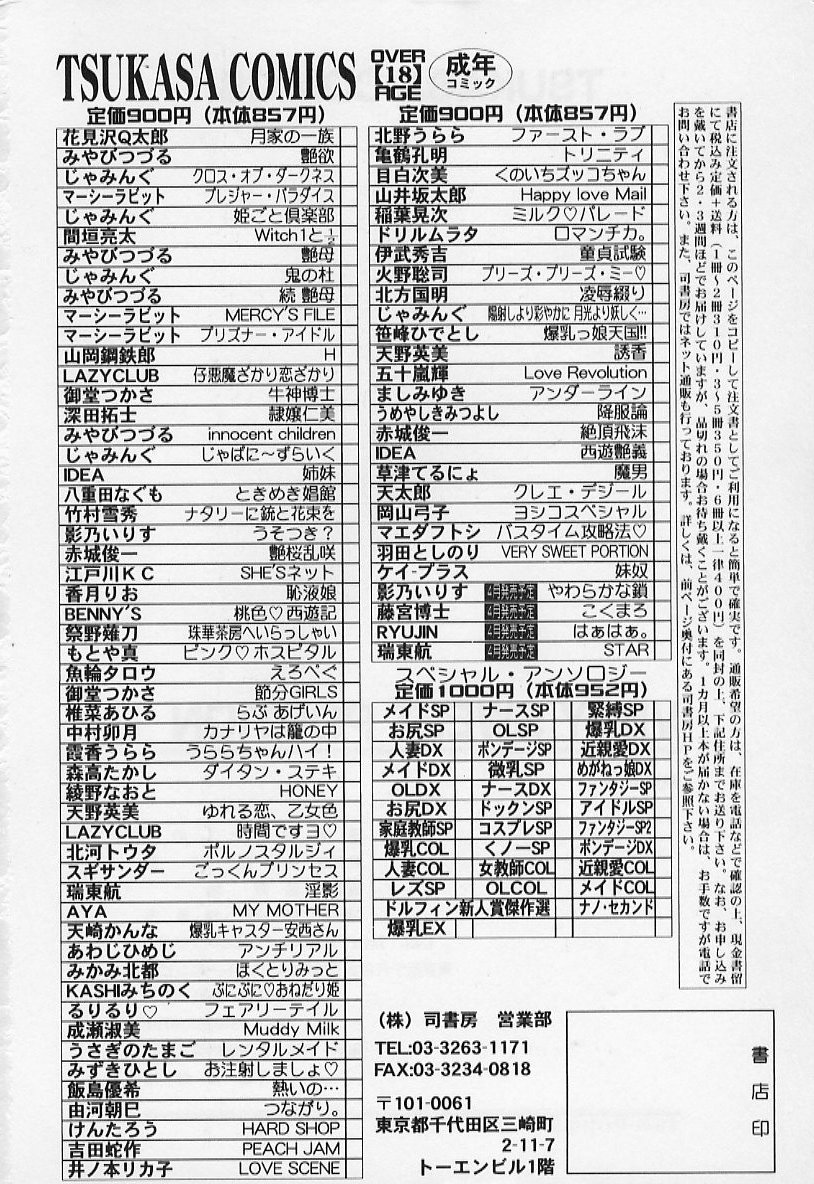 TSUKASA COMICS
OVER
【18】
AGE
成年
コミック
定価900円（本体857円）
花見沢Q太郎 月家の一族
みやびつづる 艶欲
じゃみんぐ クロス・オブ・ダークネス
マーシーラビット プレジャー・パラダイス
じゃみんぐ 姫ごと倶楽部
間垣亮太 Witch1と½
みやびつづる 艶母
じゃみんぐ 鬼の杜
みやびつづる 続 艶母
マーシーラビット MERCY'S FILE
マーシーラビット プリズナー・アイドル
山岡鋼鉄郎 H
LAZYCLUB 仔悪魔ざかり恋ざかり
御堂つかさ 牛神博士
深田拓士 隷嬢仁美
みやびつづる innocent children
じゃみんぐ じゃばに〜ずらいく
IDEA 姉妹
八重田なぐも ときめき娼館
竹村雪秀 ナタリーに銃と花束を
影乃いりす うそつき?
赤城俊一 艶桜乱咲
江戸川KC SHE'Sネット
香月りお 恥液娘
BENNY'S 桃色♡西遊記
祭野薙刀 珠華茶房へいらっしゃい
もとや真 ピンク♡ホスピタル
魚輪タロウ えろぺぐ
御堂つかさ 節分GIRLS
椎菜あひる らぶ あげいん
中村卯月 カナリヤは籠の中
霞香うらら うららちゃんハイ!
森高たかし ダイタン・ステキ
綾野なおと HONEY
天野英美 ゆれる恋、乙女色
LAZYCLUB 時間ですヨ♡
北河トウタ ポルノスタルジィ
スギサンダー ごっくんプリンセス
瑞東航 淫影
AYA MY MOTHER
天崎かんな 爆乳キャスター安西さん
あわじひめじ アンチリアル
みかみ北都 ほくとりみっと
KASHIみちのく ぷにぷに♡おねだり姫
るりるり♡ フェアリーテイル
成瀬淑美 Muddy Milk
うさぎのたまご レンタルメイド
みずきひとし お注射しましょ♡
飯島優希 熱いの…
由河朝巳 つながり。
けんたろう HARD SHOP
吉田蛇作 PEACH JAM
井ノ本リカ子 LOVE SCENE
定価900円（本体857円）
北野うらら ファースト・ラブ
亀鶴孔明 トリニティ
目白次美 くのいちズッコちゃん
山井坂太郎 Happy love Mail
稲葉晃次 ミルク♡パレード
ドリルムラタ ロマンチカ。
伊武秀吉 童貞試験
火野聡司 プリーズ・プリーズ・ミー♡
北方国明 凌辱綴り
じゃみんぐ 陽射しより彩やかに 月光より妖しく…
笹峰ひでとし 爆乳っ娘天国!!
天野英美 誘香
五十嵐輝 Love Revolution
ましみゆき アンダーライン
うめやしきみつよし 降服論
赤城俊一 絶頂飛沫
IDEA 西遊艶義
草津てるにょ 魔男
天太郎 クレエ・デジール
岡山弓子 ヨシコスペシャル
マエダフトシ バスタイム攻略法♡
羽田としのり VERY SWEET PORTION
ケイ-プラス 妹奴
影乃いりす 4月発売予定 やわらかな鎖
藤宮博士 4月発売予定 こくまろ
RYUJIN 4月発売予定 はぁはぁ。
瑞東航 4月発売予定 STAR
スペシャル・アンソロジー
定価1000円（本体952円）
メイドSP ナースSP 緊縛SP
お尻SP OLSP 爆乳DX
人妻DX ボンデージSP 近親愛DX
メイドDX 微乳SP めがねっ娘DX
OLDX ナースDX ファンタジーSP
お尻DX ドックンSP アイドルSP
家庭教師SP コスプレSP ファンタジーSP2
爆乳COL くノ一SP ボンデージDX
人妻COL 女教師COL 近親愛COL
レズSP OLCOL メイドCOL
ドルフィン新人賞傑作選 ナノ・セカンド
爆乳EX
書店に注文される方は、このページをコピーして注文書としてご利用になると簡単で確実です。通販希望の方は、在庫を電話などで確認の上、現金書留
にて税込み定価＋送料（1冊〜2冊310円・3〜5冊350円・6冊以上一律400円）を同封の上、下記住所までお送り下さい。なお、お申し込み
を戴いてから2・3週間ほどでお届けしていますが、品切れの場合お待ち戴くことがございます。1カ月以上本が届かない場合は、お手数ですが電話で
お問い合わせ下さい。また、司書房ではネット通販も行っております。詳しくは、前ページ奥付にある司書房HPをご参照下さい。
（株）司書房 営業部
TEL:03-3263-1171
FAX:03-3234-0818
〒101-0061
東京都千代田区三崎町
2-11-7
トーエンビル1階
書店印